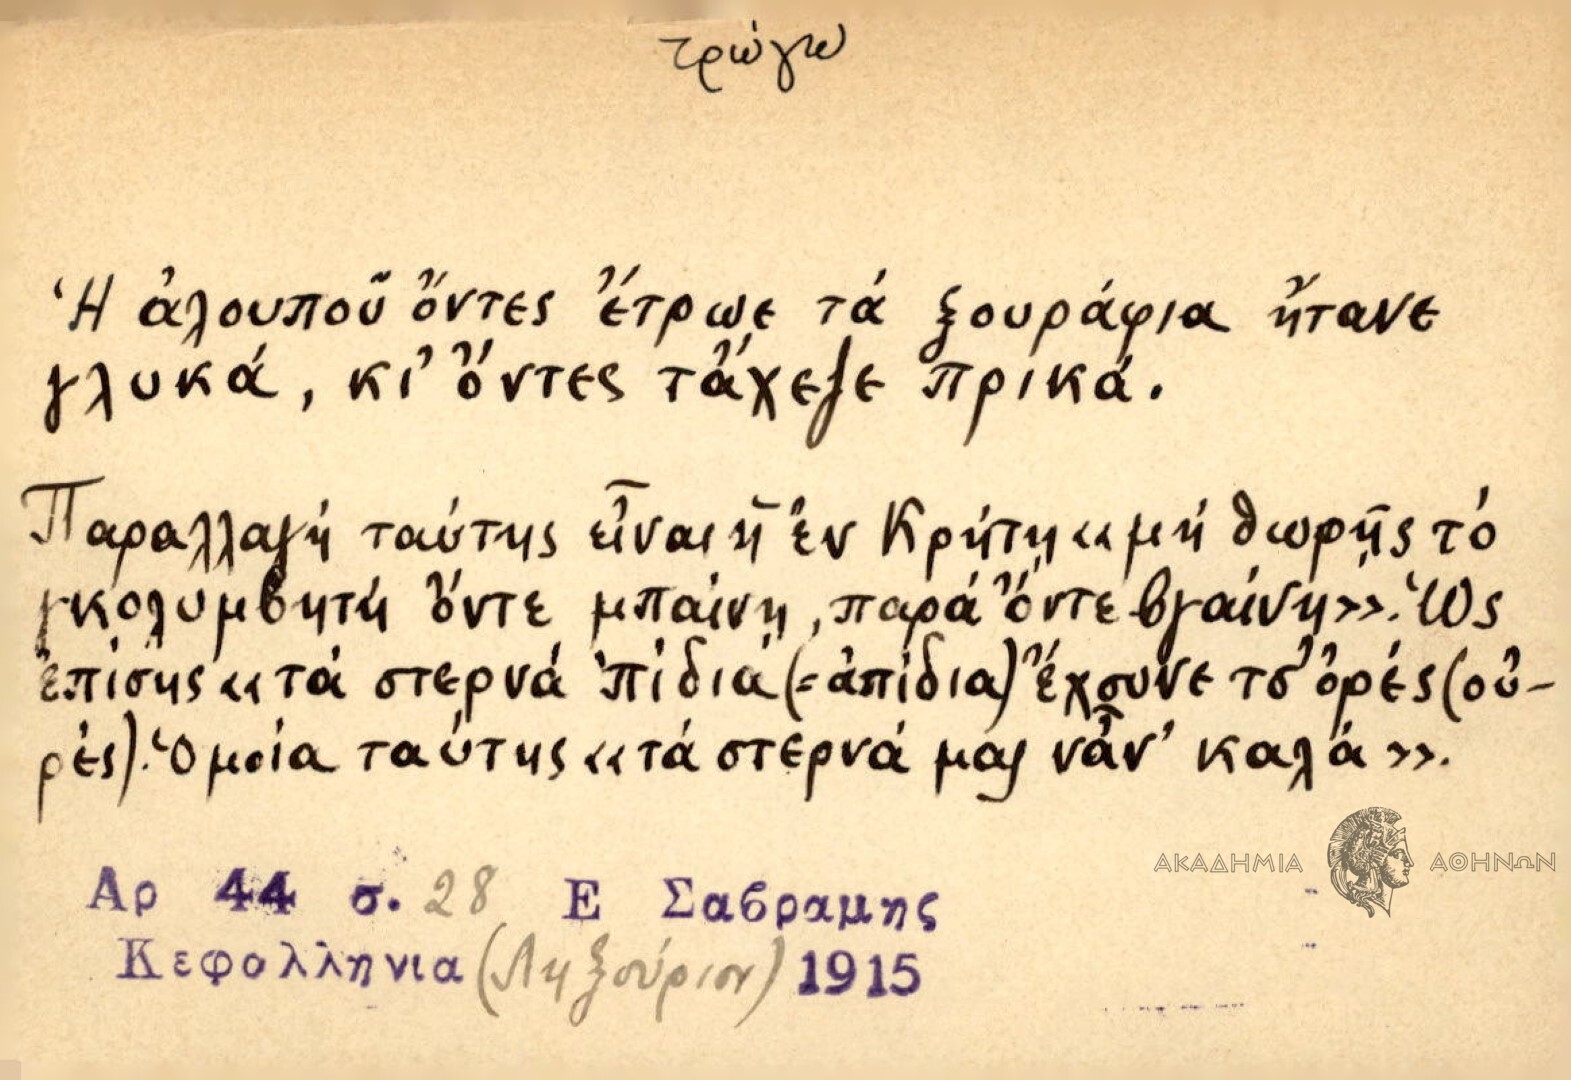 τρώγω
Ἡ ἀλουποῦ ὅντες ἔτρωε τά ξουράφια ἤτανε
γλυκά, κι' ὅντες τἄχεζε πρικά.
Παραλλαγή ταύτης εἶναι ἡ ἐν Κρήτῃ «μή θωρῇς τό
γκολυμβητή ὅντε μπαίνῃ, παρά ὅντε βγαίνῃ». Ὡς
ἐπίσης «τά στερνά 'πίδια (=ἀπίδια) ἔχουνε τσ' ὀρές (οὐ-
ρές). Ὁμοία ταύτης «τά στερνά μας νἆν' καλά».
Αρ 44 σ. 28 Ε Σαβραμης
Κεφαλληνια (Ληξούριον) 1915
ΑΚΑΔΗΜΙΑ ΑΘΗΝΩΝ